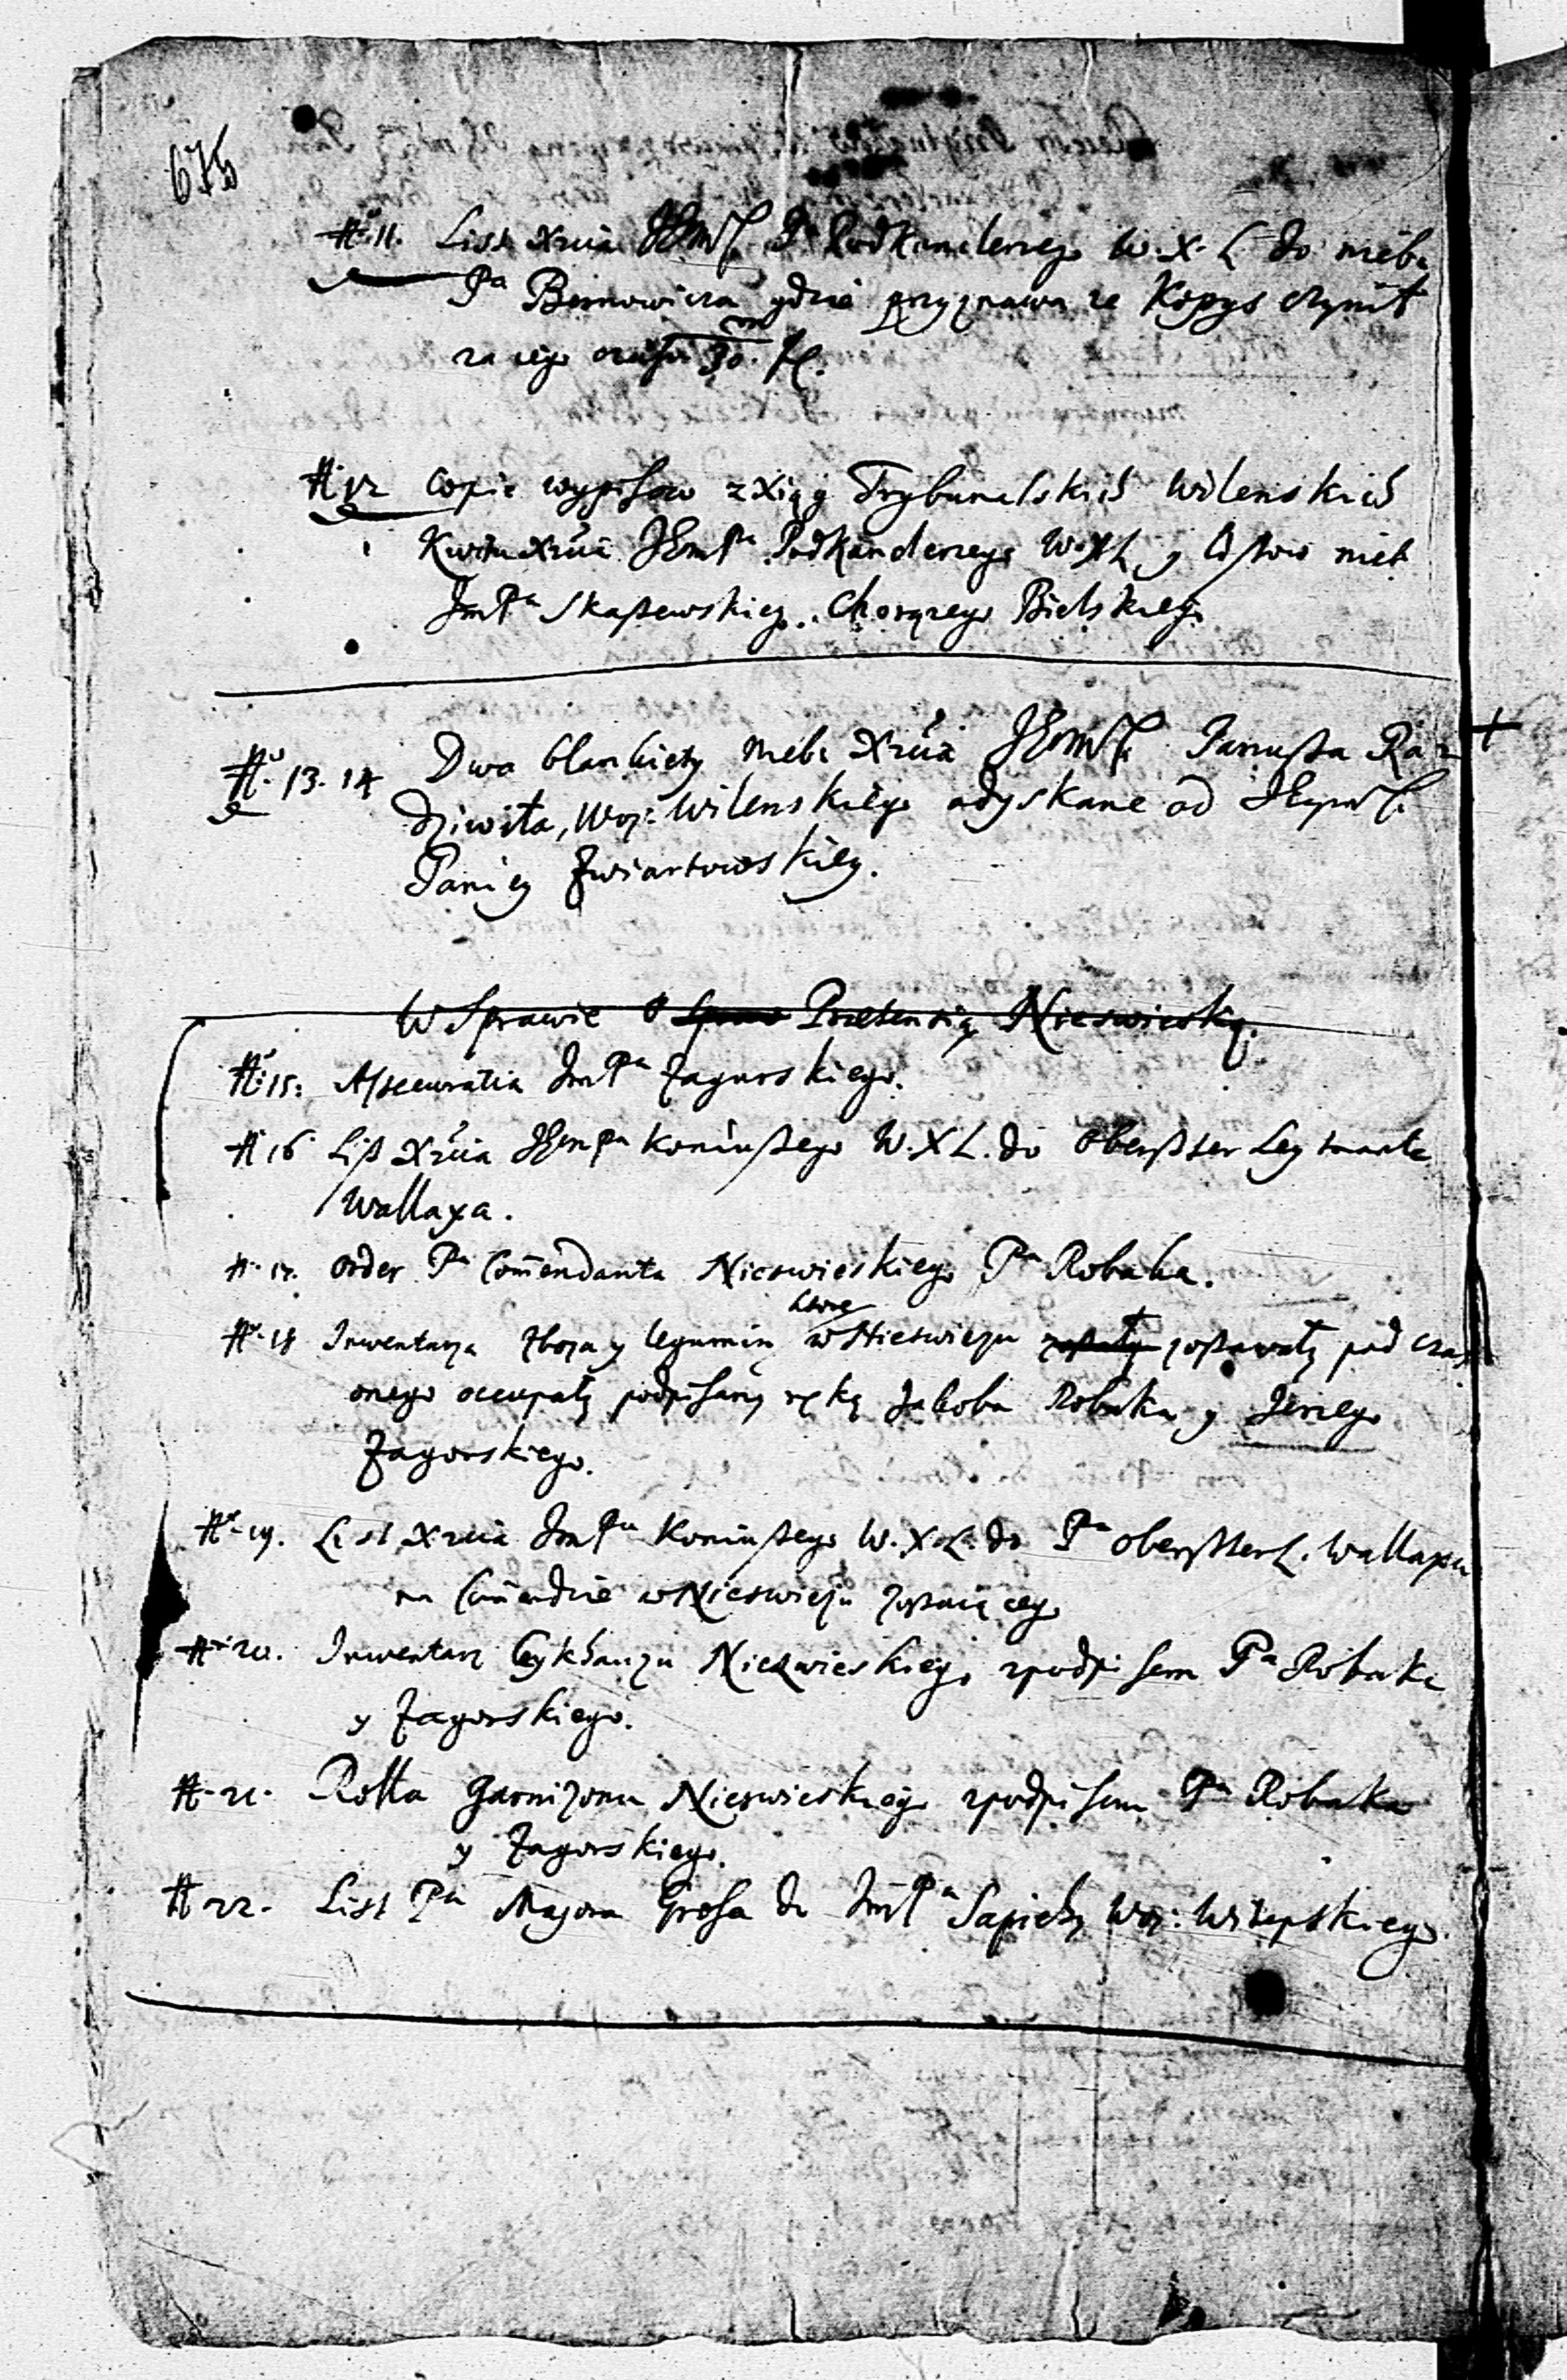 675
№ 11. List Xcia JEmſći Pª Podkanclerzego W. X. L. do niebˢ
Pª Biernowicza gdzie przyznawa ze Kopys czynił
za iego 30. m fl.
№ 12 Copie wypisow z Xiąg Trybunalskich Wilenskich
Kwitu Xcia JEmPª Podkanclerzego W. X. L. y Listow nieb
JmPª Skaszewskiego. Chorązego Bielskiego
№ 13. 14 Dwa blankiety niebˢ Xcia JEmſći Janusza Ra-
dziwiła, Woj: Wilenskiego odyskane od JEymſći
Paniey Zwiartowskiey.
W Sprawie o Spraw Prætensią Nieswieską.
№ 15: Assecuratia JmPª Zagorskiego.
№ 16 List Xcia JEmPª Koniuszego W. X L. do Oberszter Leytnanta
Wallaxa.
№ 17. Order Pª Comendanta Nieswieskiego Pª Robaka.
ktore
№ 18 Inwentarza zboza y legumin w Nieswiezu zostały zostawały pod czas
onego occupaty podpisany ręką Jakoba Robaka y Jerzego
Zagorskiego.
№ 19. List Xcia JmPª Koniuszego W. X. L. do Pª Oberszter L. Wallaxa
na Comendzie w Nieswiezu zostaiącego
№ 20. Inwentarz Cykhauzu Nieswieskiego z podpisem Pª Robaka
y Zagorskiego.
№ 21. Rolla Garnizonu Nieswieskiego z podpisem Pª Robaka
y Zagorskiego.
№ 22. List Pª Majora Grosa do JmPª Sapiehy Woj: Witepskiego.